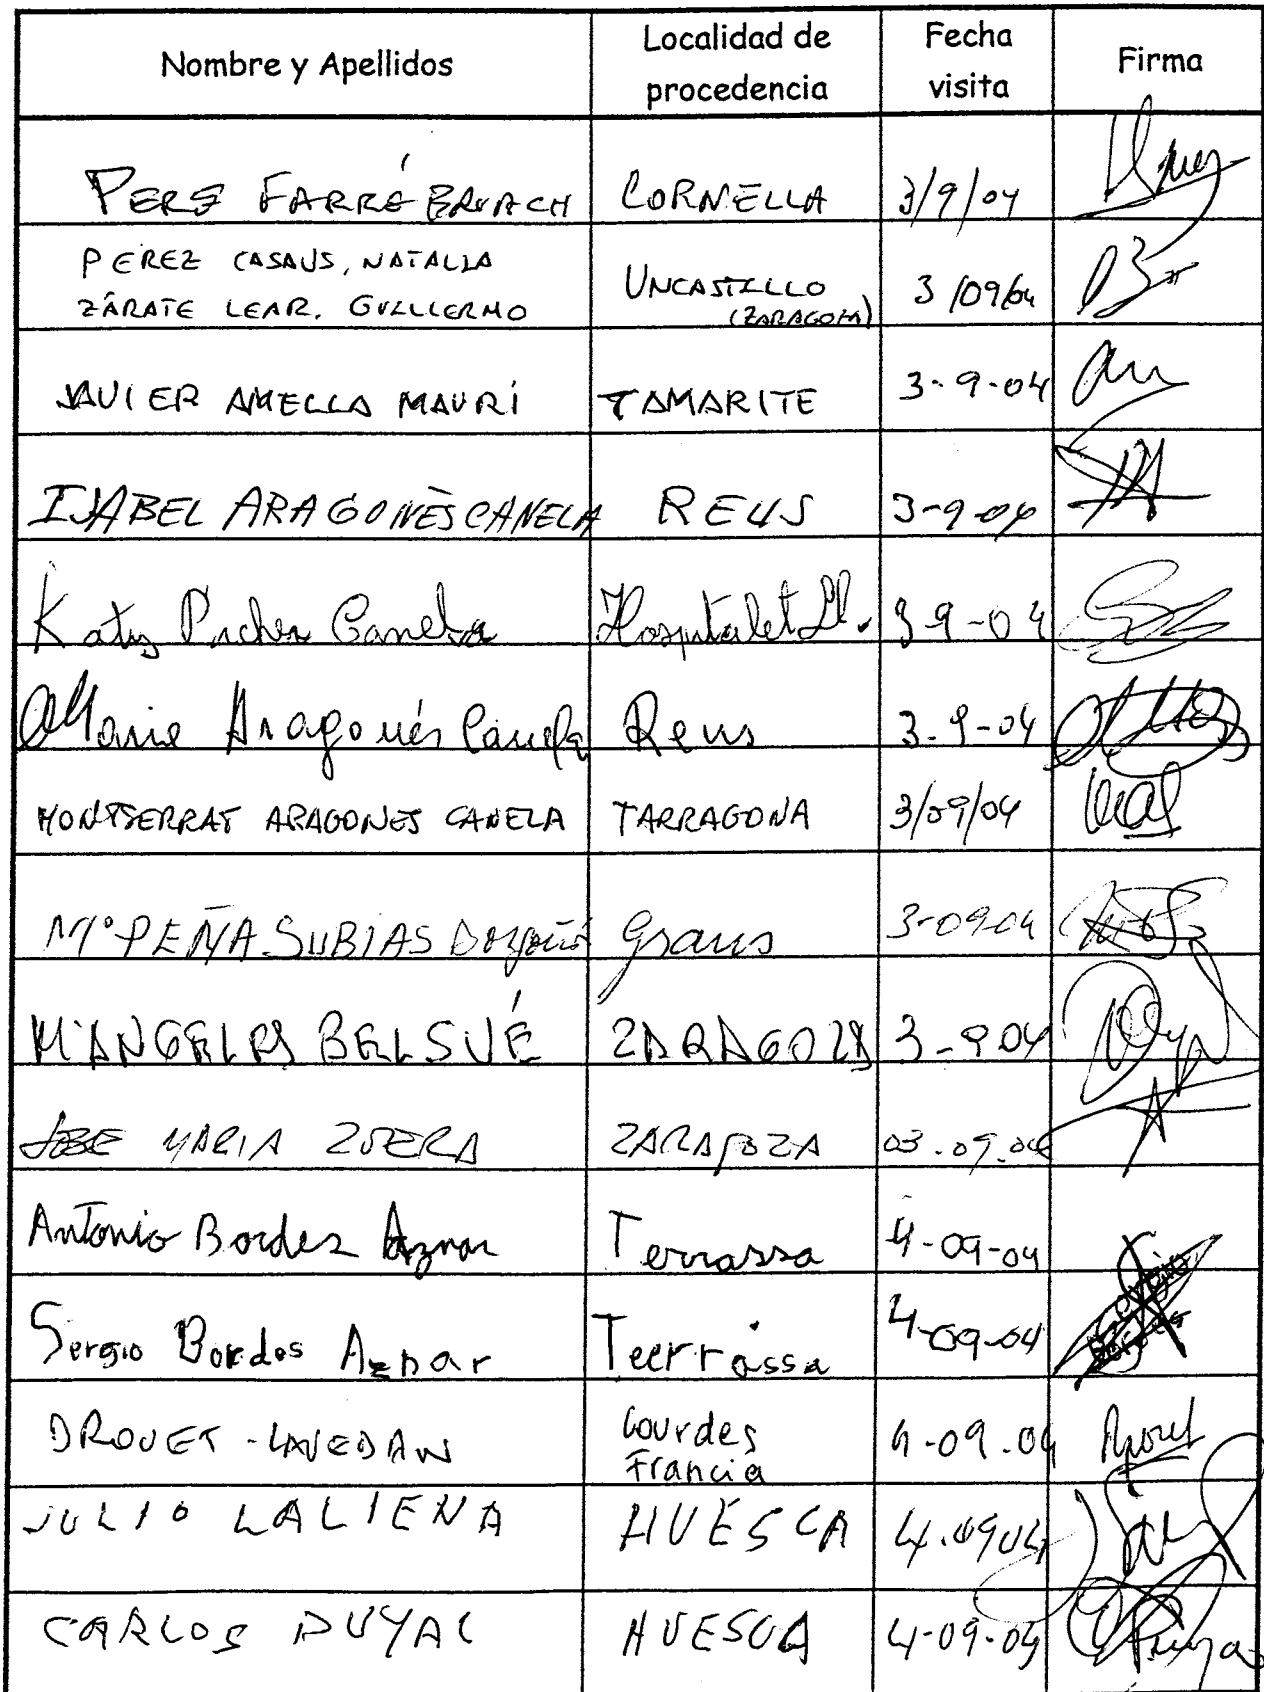 Nombre y Apellidos Localidad de procedencia Fecha visita Firma
PERE FARRÉ BRUACH CORNELLA 3/9/04
PEREZ CASAUS, NATALIA
ZÁRATE LEAR, GUILLERMO UNCASTILLO (ZARAGOZA) 3/09/04
JAVIER AMELLA MAURÍ TAMARITE 3-9-04
ISABEL ARAGONÈS CANELA REUS 3-9-04
Katy Canela Hospitalet Ll. 3-9-04
Aragonés Canela Reus 3-9-04
MONTSERRAT ARAGONES CANELA TARRAGONA 3/09/04
Mª PEÑA SUBIAS Graus 3-09-04
Mª ANGELES BELSUÉ ZARAGOZA 3-9-04
JOSE MARIA ZUERA ZARAGOZA 03.09.04
Antonio Bordez Aznar Terrassa 4-09-04
Sergio Bordes Aznar Teerrassa 4-09-04
Sergio Bordes
DROUET-LAVEDAN Lourdes Francia 4-09-04
JULIO LALIENA HUESCA 4.09 04
CARLOS PUYAL HUESCA 4-09-04